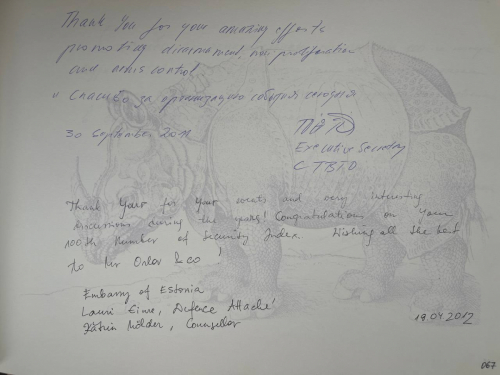 Thank You for your amazing efforts
promoting disarmament, non-proliferation
and arms control
" Спасибо за организацию события сегодня
30 September 2011
Executive Secretary
CTBTO
Thank Your for Your events and very interesting
discussions during the years! Congratulations on Your
100th Number of Security Index. Wishing all the best
to Mr Orlov & co!
Embassy of Estonia
Lauri Eime, Defence Attaché
Katrin Mölder, Counsellor
19.04.2012
067